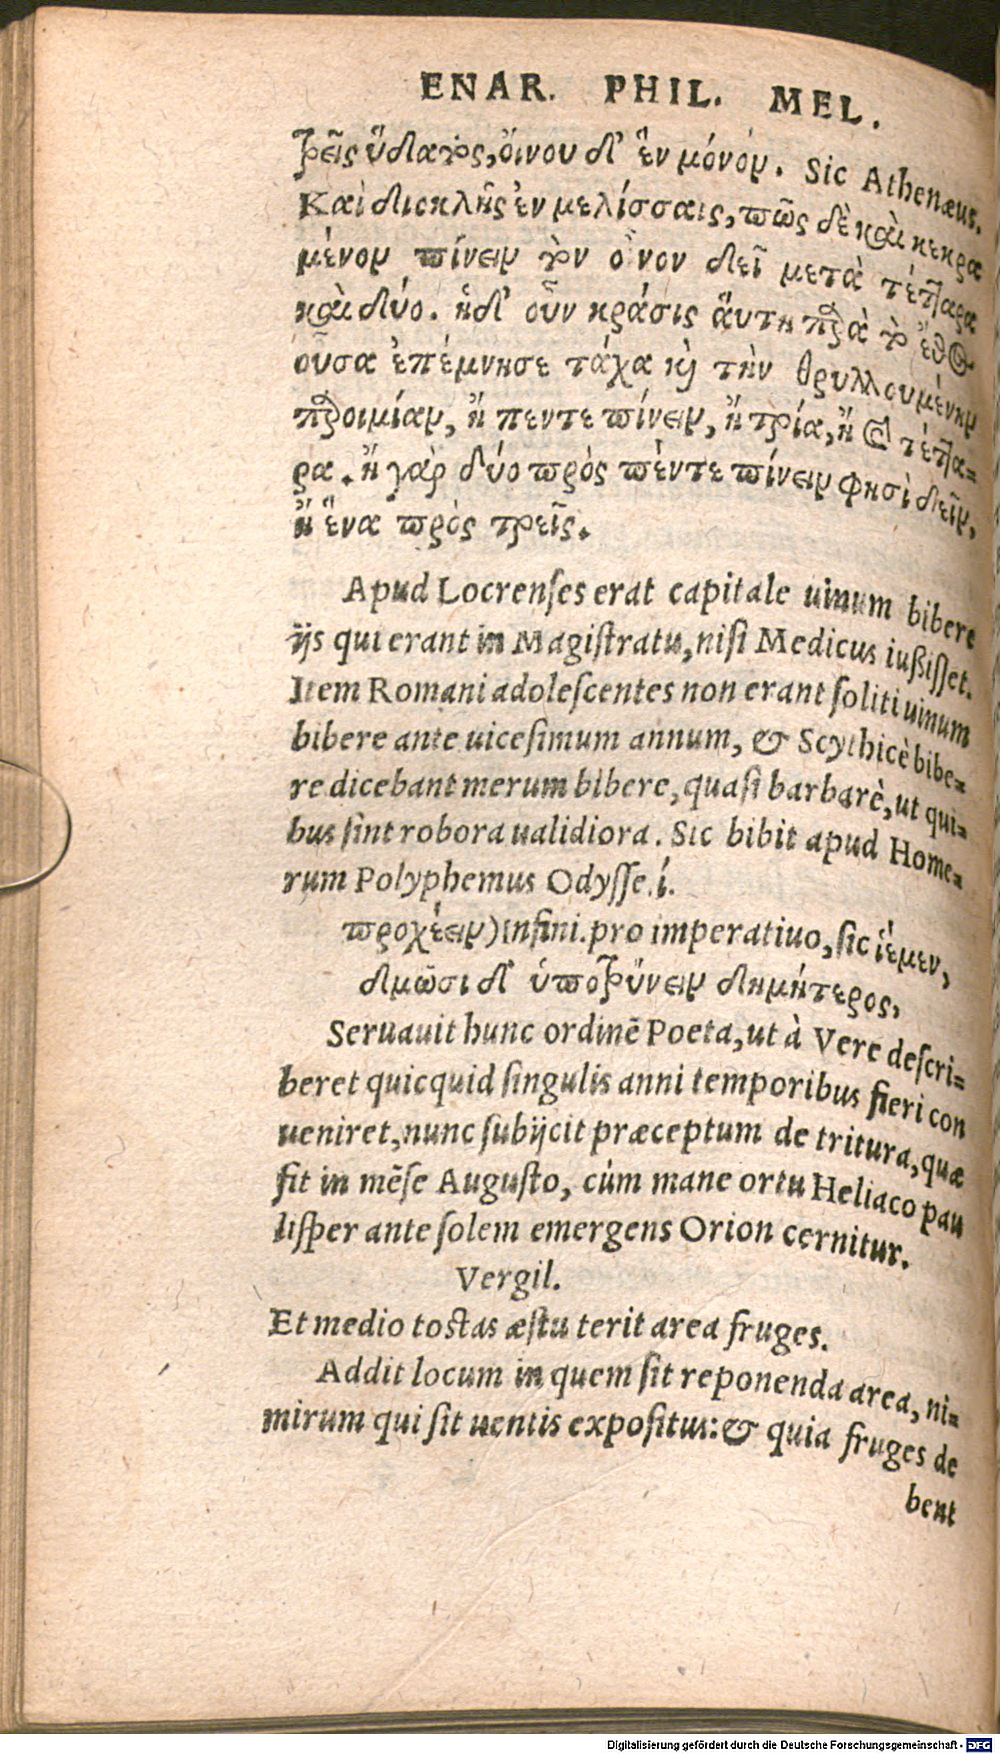 ENAR. PHIL. MEL.
τρεῖς ὕδατος, ὄινου δ' ἓν μόνον. Sic Athenæus.
Καὶ διοκλῆς ἐν μελίσσαις, πῶς δὲ καὶ κεκρα
μένον πίνειν τὸν οἶνον δεῖ μετὰ τέτταρα
καὶ δύο. ἡδ' οὖν κράσις ἅυτη παρὰ τὸ ἔθος
οὖσα ἐπέμνησε τάχα καὶ τὴν θρυλλουμένην
παροιμίαν, ἢ πεντε πίνειν, ἢ τρία, ἢ μὴ τέττα-
ρα. ἢ γὰρ δύο πρὸς πέντε πίνειν φησὶ δεῖν,
ἢ ἕνα πρὸς τρεῖς.
Apud Locrenſes erat capitale uinum bibere
ijs qui erant in Magiſtratu, niſi Medicus iuſsiſſet.
Item Romani adoleſcentes non erant ſoliti uinum
bibere ante uiceſimum annum, & Scythicè bibe-
re dicebant merum bibere, quaſi barbarè, ut qui-
bus ſint robora ualidiora. Sic bibit apud Home-
rum Polyphemus Odyſſe.í.
προχέειν) Infini. pro imperatiuo, ſic ἱέμεν,
δμῶσι δ' ὑποτρύνειν δημήτερος,
Seruauit hunc ordinẽ Poeta, ut à Vere deſcri-
beret quicquid ſingulis anni temporibus fieri con
ueniret, nunc ſubijcit præceptum de tritura, quæ
fit in mẽſe Auguſto, cùm mane ortu Heliaco pau
liſper ante ſolem emergens Orion cernitur.
Vergil.
Et medio toſtas æſtu terit area fruges.
Addit locum in quem ſit reponenda area, ni-
mirum qui ſit uentis expoſitus: & quia fruges de
bent
Digitalisierung gefördert durch die Deutsche Forschungsgemeinschaft - DFG